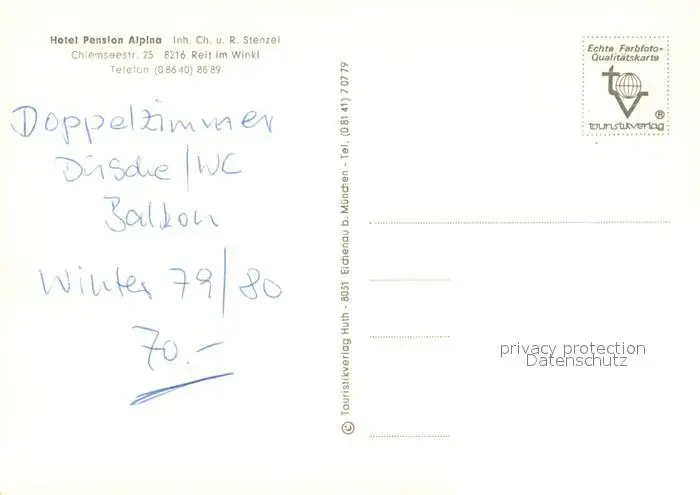 Hotel Pension Alpina Inh. Ch. u. R. Stenzel
Chiemseestr. 25 8216 Reit im Winkl
Telefon (0 86 40) 88 89
Doppelzimmer
Dusche/WC
Balkon
Winter 79/80
70.-
© Touristikverlag Huth - 8031 Eichenau b. München - Tel. (0 81 41) 7 07 79
Echte Farbfoto-
Qualitätskarte
tv
®
touristikverlag
privacy protection
Datenschutz